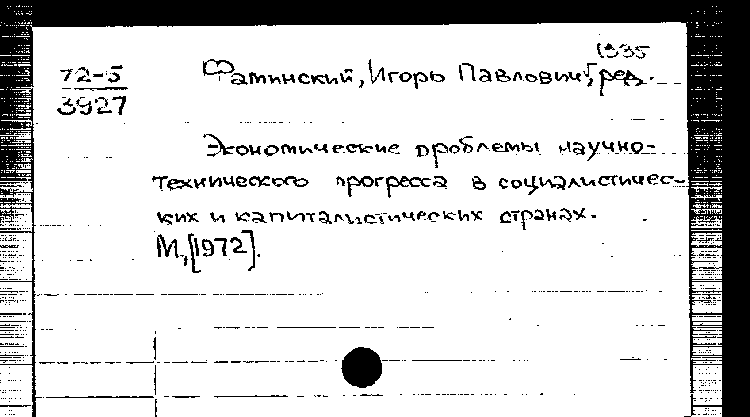 1935
72-5 Фаминский, Игорь Павлович, ред.
3927
Экономические проблемы научно-
технического прогресса в социалистичес-
ких и капиталистических странах.
М., [1972].